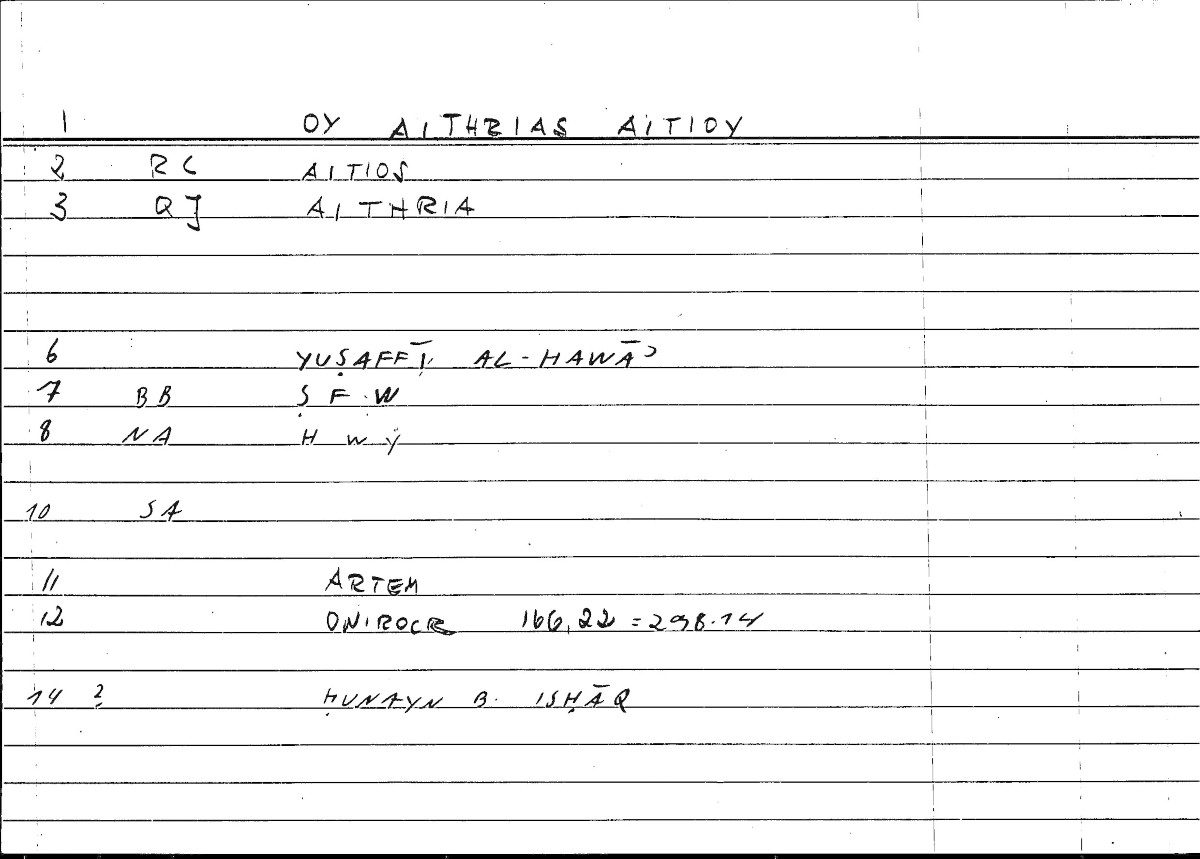 1 OY AITHRIAS AITIOY
2 RC AITIOS
3 QJ AITHRIA
6 YUṢAFFĪ AL-HAWĀʾ
7 BB Ṣ F W
8 NA H W Y
10 SA
11 ARTEM
12 ONIROCR 166,22 = 298.14
14 ? ḤUNAYN B. ISḤĀQ